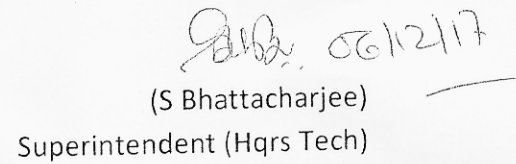 06/12/17
(S Bhattacharjee)
Superintendent (Hqrs Tech)